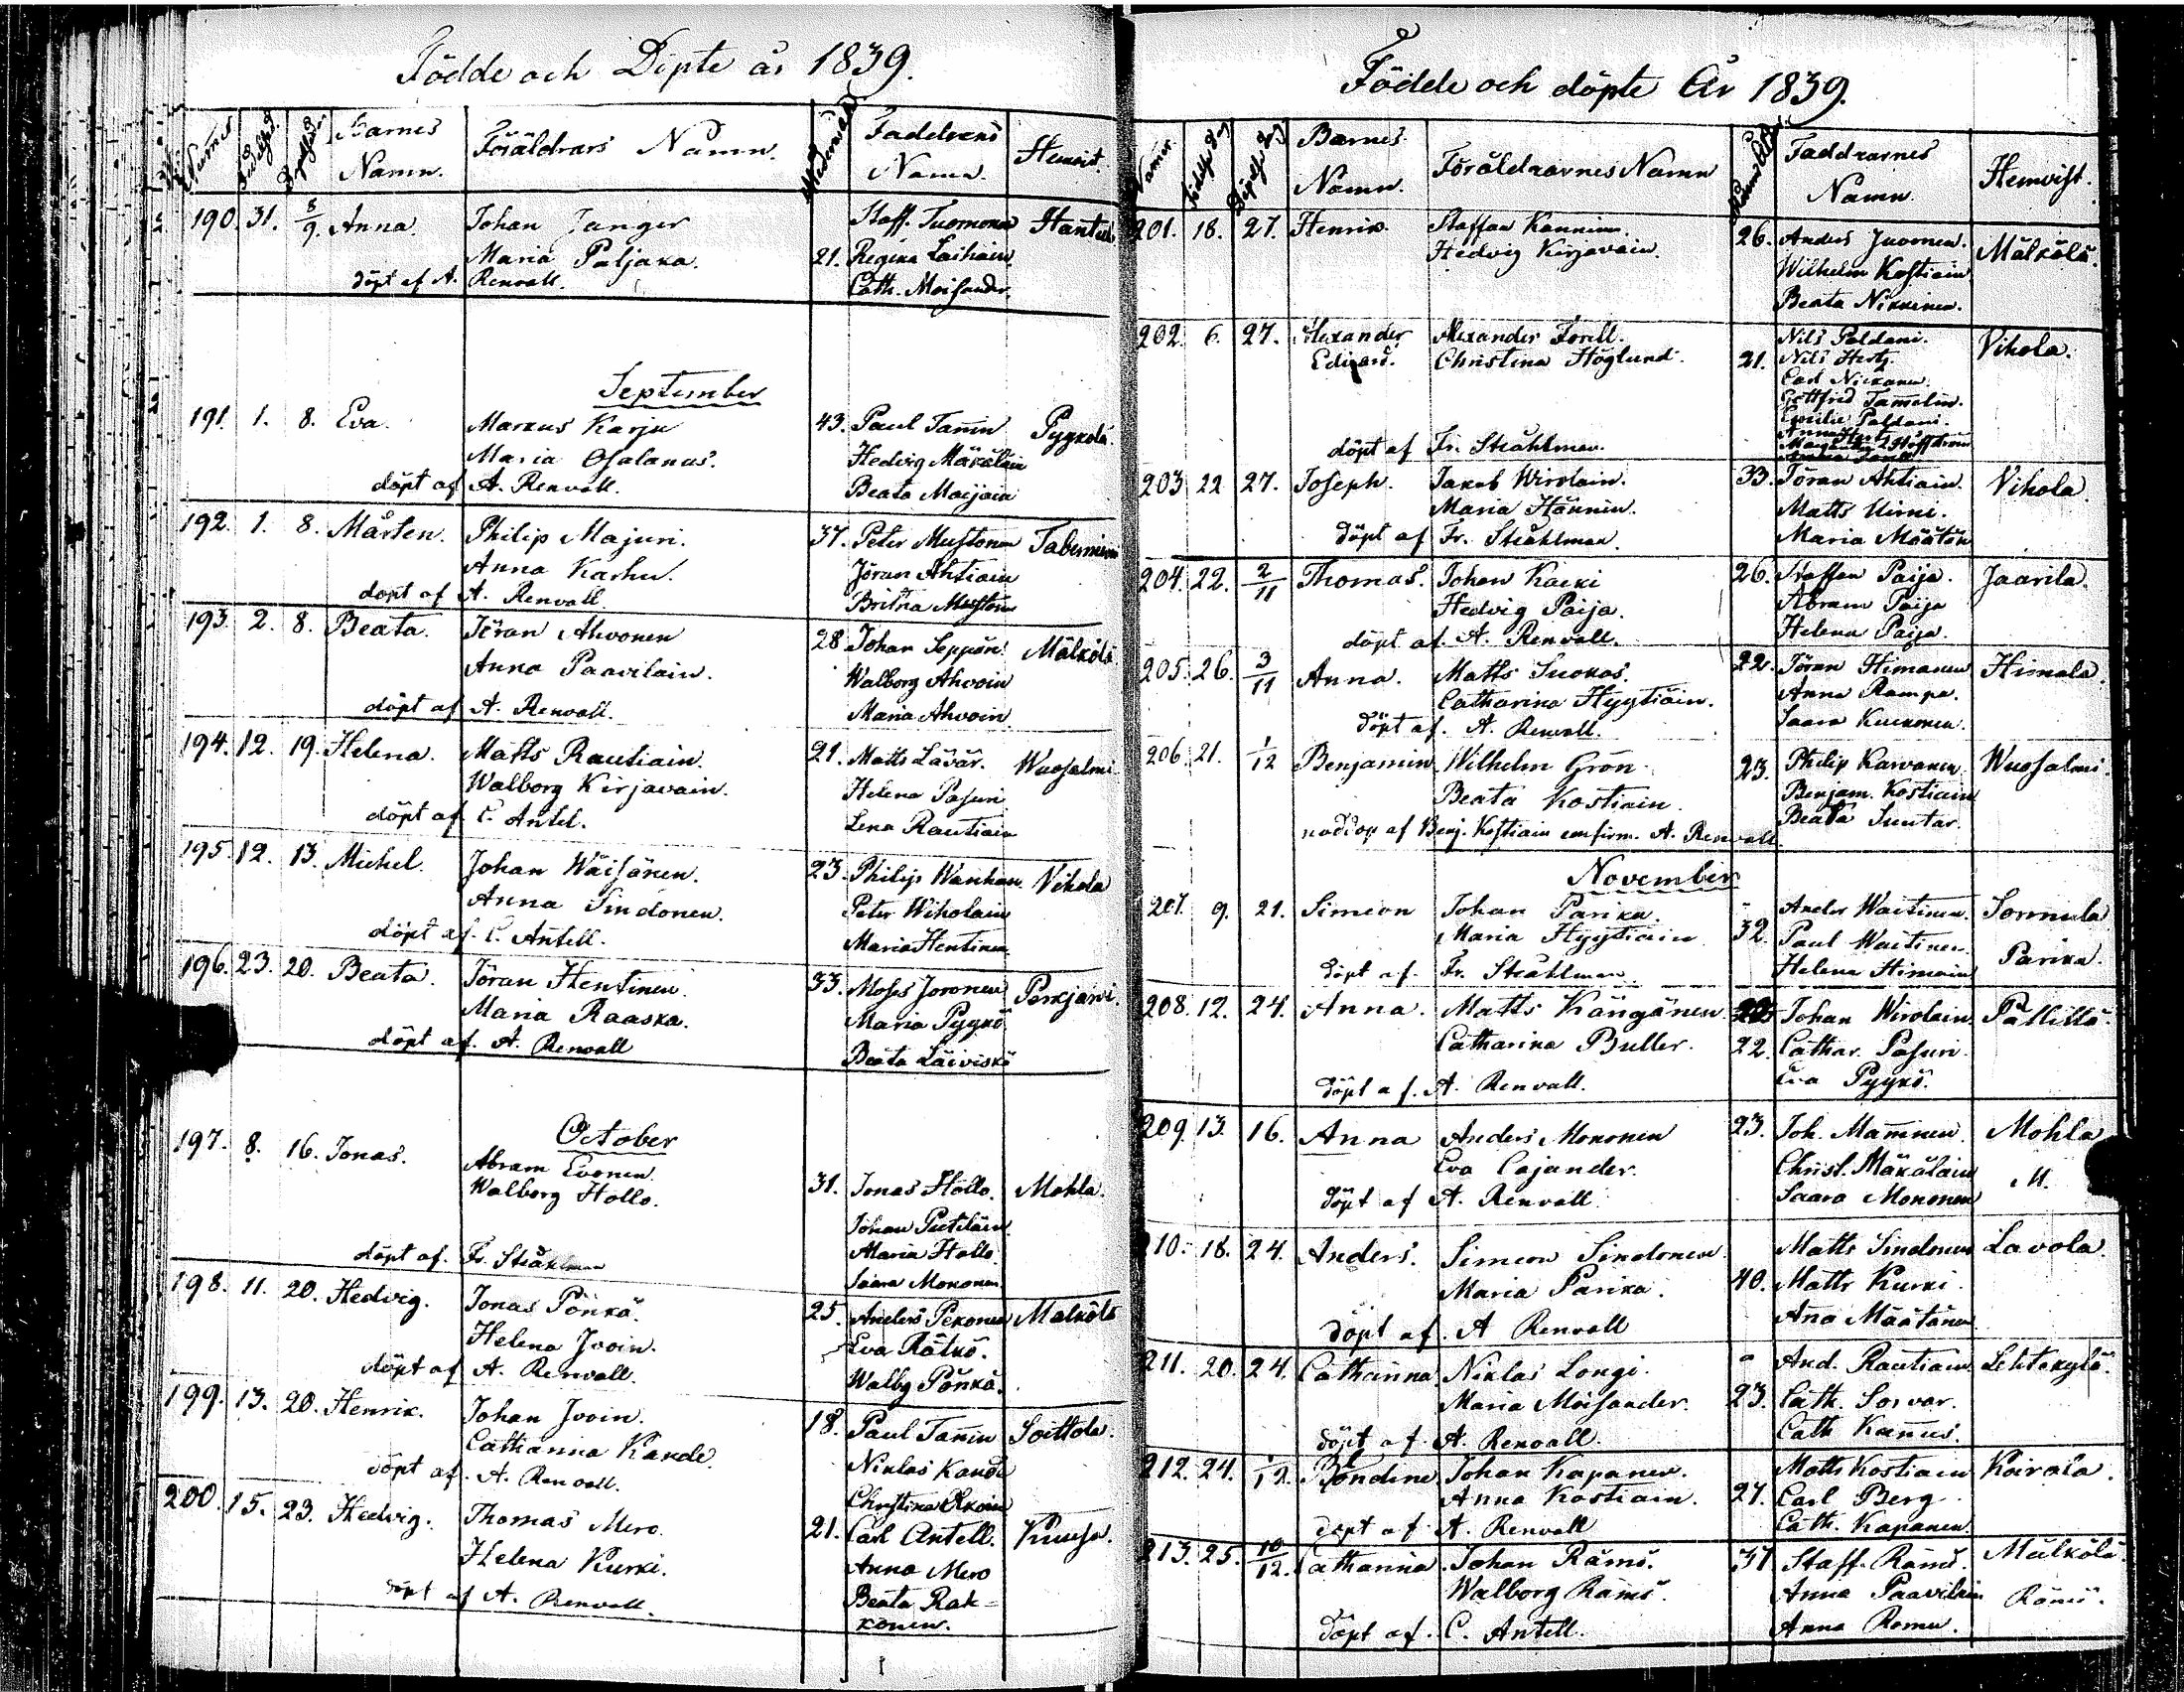 Födde och Döpte år 1839.
Barnes Namn. Föräldrars Namn. Faddrens Namn. Hemvist.
190. 31. 8/9. Anna. Johan Janger Staff. Tuomonen
Maria Paljaka. 21. Regina Laihiain
döpt af A. Renvall. Cath. Moisander.
September
191. 1. 8. Eva. Markus Karju 43. Paul Tanin Pygkölä
Maria Osalanus. Hedvig Mäkäläin
döpt af A. Renvall. Beata Maijain
192. 1. 8. Mårten. Philip Majuri. 37. Peter Mustonen
Anna Karhu. Jöran Ahtiain
döpt af A. Renvall. Britha Muston
193. 2. 8. Beata. Jöran Ahvonen 28 Johan Seppön Mälkölä
Anna Paavilain. Walborg Ahvoin
döpt af A. Renvall. Maria Ahvoin.
194. 12. 19. Helena. Matts Rautiain. 21. Matts Lävär. Wuosalmi
Walborg Kirjavain. Helena Pasuri
döpt af C. Antel. Lena Rautiain
195. 12. 13. Michel. Johan Wäisänen. 23. Philip Wanhan Vihola
Anna Sindonen. Peter Wiholain
döpt af. C. Antell. Maria Hentinen
196. 23. 20. Beata. Jöran Hentinen. 33. Moses Joronen Perkjärvi.
Maria Raaska. Maria Pygkö
döpt af. A. Renvall Beata Läiviskö
October
197. 8. 16. Jonas. Abram Evonen.
Walborg Hollo. 31. Jonas Hollo. Mohla.
Johan Putiläin
Maria Hollo
döpt af. Fr. Stråhlman Saara Mononen
198. 11. 20. Hedvig. Jonas Pönkä. 25. Anders Pekonen Mälkölä
Helena Jvoin. Eva Rätkö.
döpt af A. Renvall. Walbg Pönkä.
199. 13. 20. Henrik. Johan Jvoin. 18. Paul Tanin Soittola.
Catharina Kande. Niklas Kande
döpt af. A. Renvall. Christina
200. 15. 23. Hedvig. Thomas Mero. 21. Carl Antell. Kuusa.
Helena Kurki. Anna Mero
döpt af A. Renvall. Beata Rak-
konen.
Födde och döpte År 1839.
Barnes Namn. Föräldrarnes Namn Faddrarnes Namn. Hemvist.
201. 18. 27. Henrik. Staffan Kannin. 26. Anders Juonen. Mälkölä.
Hedvig Kirjavain. Wilhelm Kostiain
Beata Nikkinen.
202. 6. 27. Alexander Alexander Forell. Nils Poldani. Vihola.
Edvard. Christina Höglund. 21. Nils Hertz.
Carl Nickanen.
Gottfrid Tamelin.
Emilie Poldani.
döpt af Fr. Stråhlman.
203. 22 27. Joseph. Jakob Wirolain. 33. Jöran Ahtiain. Vihola.
Maria Hännin. Matts Hirni.
döpt af Fr. Stråhlman. Maria Määtön
204. 22. 2/11 Thomas. Johan Kaeki 26. Staffan Paija. Jaarila.
Hedvig Paija. Abram Paija
döpt af. A. Renvall. Helena Paija.
205. 26. 3/11 Anna. Matts Suokas. 22. Jöran Himanen Himala.
Catharina Hyytiäin. Anna Rampa.
döpt af. A. Renvall. Saara Kuckonen.
206. 21. 1/12 Benjamin Wilhelm Grön. 23. Philip Karvanen Wuosalmi.
Beata Kostiain. Benjam. Kostiain
nöddöp af Benj. Kostiain confirm. A. Renvall. Beata Suutar.
November
207. 9. 21. Simeon Johan Parika. Anders Waitinen. Sormula
Maria Hyytiäin 32. Paul Waitinen.
döpt af. Fr. Stråhlman. Helena Himain Parika.
208. 12. 24. Anna. Matts Kängänen Johan Wirolain. Pällillä.
Catharina Buller. 22. Cathar. Pasuri.
döpt af. A. Renvall. Eva Pygkö.
209. 13. 16. Anna Anders Mononen 23. Joh. Mamnen. Mohla
Eva Cajander. Christ. Mäkäläin M.
döpt af A. Renvall Saara Mononen
210. 18. 24. Anders. Simeon Sindonen Matts Sindonen Lavola.
Maria Parika. 40. Matts Kurki.
döpt af. A Renvall Ana Määtänen
211. 20. 24. Catharina Niklas Longi. And. Rautiain Lehtokylä.
Maria Moisander. 23. Cath. Sorvar.
döpt af A. Renvall. Cath Kanus.
212. 24. 1/12. Bondine. Johan Kapanen. Matts Kostiain Kairala.
Anna Kostiain. 27. Carl Berg
döpt af A. Renvall Cath. Kapanen.
213. 25. 10/12. Catharina. Johan Rämö. 37 Staff. Rämö. Mälkölä.
Walborg Rämö. Anna Paavilain Rämö.
döpt af. C. Antell. Anna Romu.